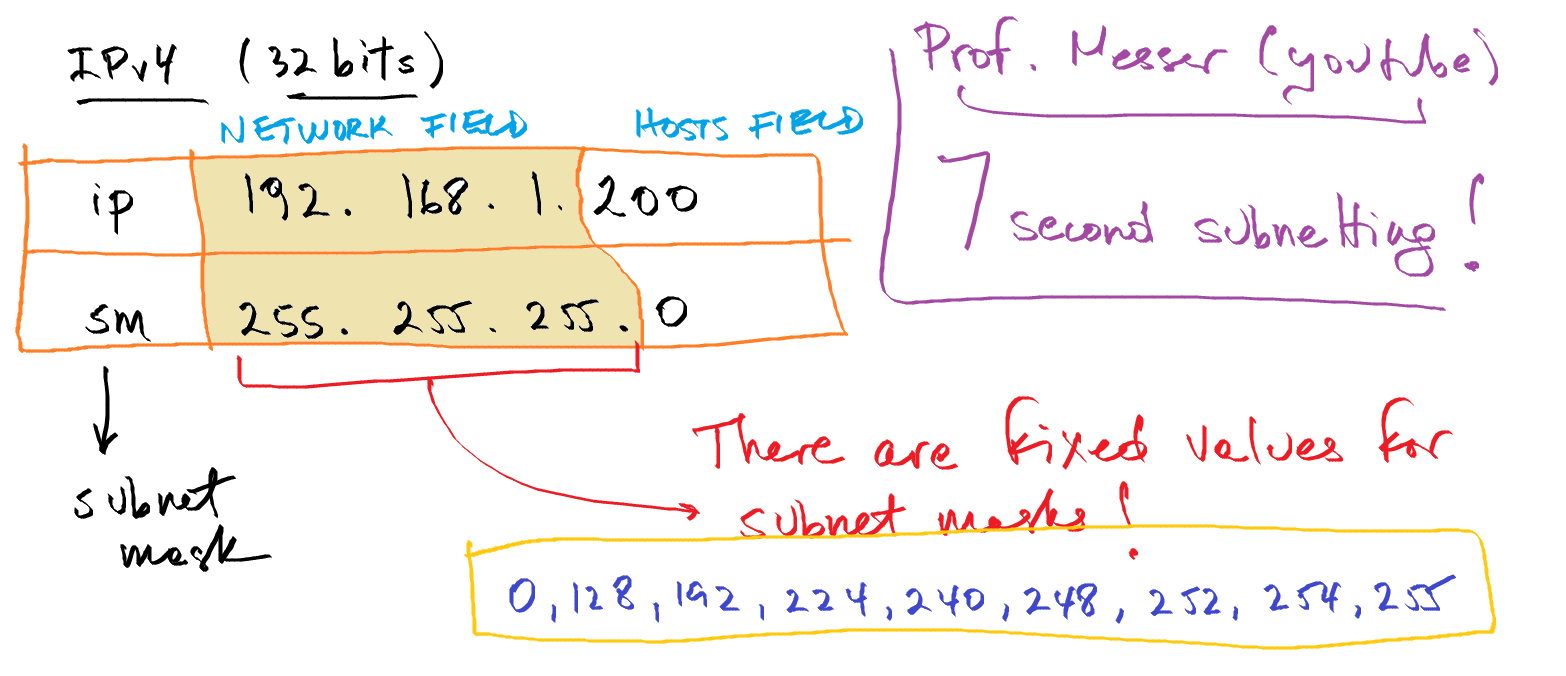 IPv4 (32 bits)
NETWORK FIELD HOSTS FIELD
ip 192. 168. 1. 200
sm 255. 255. 255. 0
subnet
mask
Prof. Messer (youtube)
7 second subnetting!
There are fixed values for
subnet masks!
0, 128, 192, 224, 240, 248, 252, 254, 255